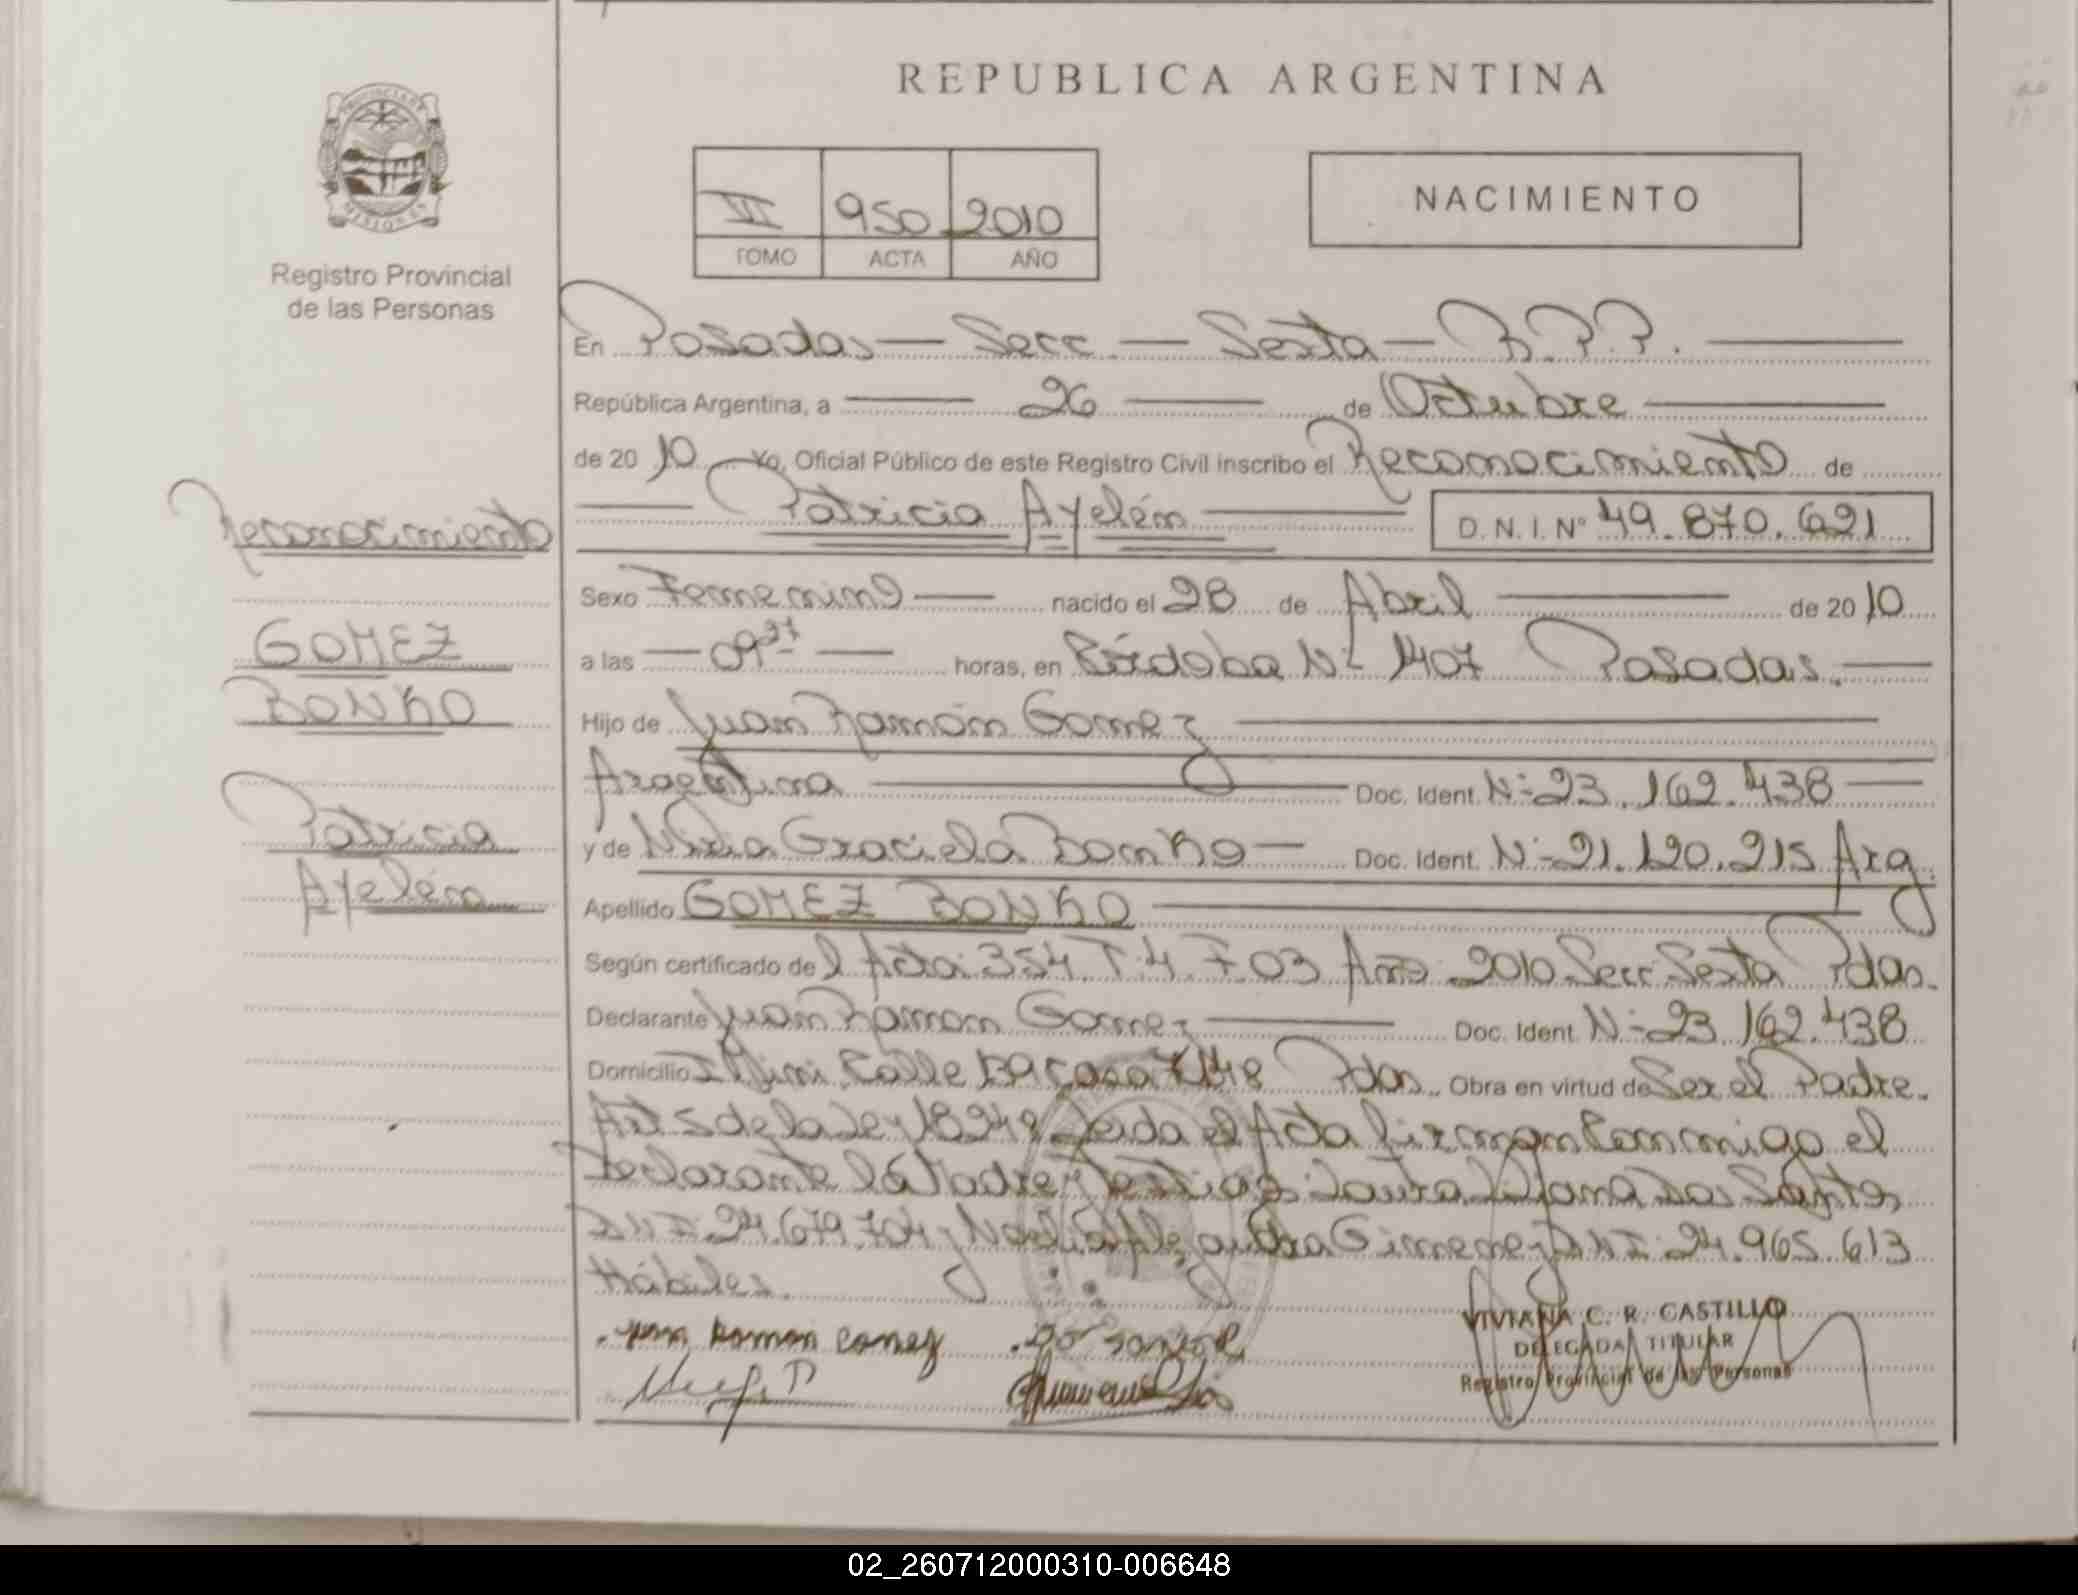 REPUBLICA ARGENTINA
PROVINCIA DE MISIONES
Registro Provincial
de las Personas
III 950 2010
TOMO ACTA AÑO
NACIMIENTO
En Posadas — Secc. — Sexta — R.P.P. —
República Argentina, a — 26 — de Octubre —
de 20 10 Yo, Oficial Público de este Registro Civil inscribo el Reconocimiento de
— Patricia Ayelén — D.N.I. Nº 49.870.621
Sexo Femenino — nacido el 28 de Abril — de 20 10
a las — 09 27 — horas, en Córdoba Nº 1407 Posadas. —
Hijo de Juan Ramón Gomez —
Argentina — Doc. Ident. Nº 23.162.438 —
y de Graciela Bonko — Doc. Ident. Nº 21.120.215 Arg.
Apellido GOMEZ BONKO —
Según certificado del Acta 354 T 4 F 03 Año 2010 Secc Sexta Pdas.
Declarante Juan Ramon Gomez — Doc. Ident. Nº 23.162.438
Domicilio Calle Casa Pdas. Obra en virtud de Ser el Padre.
Art 5 de la Ley 18248 Leida el Acta firman Conmigo el
Declarante la Madre y Testigos Laura Liliana Dos Santos
DNI 24.679.704 y Alejandra Gimenez DNI 24.965.613
Hábiles.
Juan Ramon Gomez Do Santos
VIVIANA C. R. CASTILLO
DELEGADA TITULAR
Registro Provincial de las Personas
Reconocimiento
GOMEZ
BONKO
Patricia
Ayelén
02_260712000310-006648